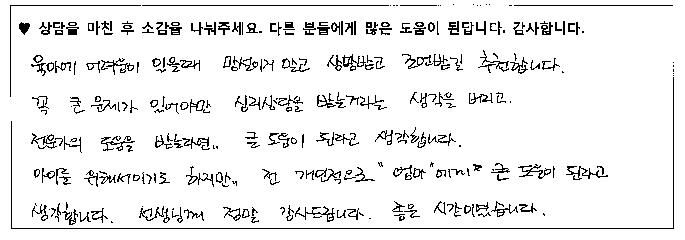 ♥ 상담을 마친 후 소감을 나눠주세요. 다른 분들에게 많은 도움이 된답니다. 감사합니다.
육아에 어려움이 있을때 망설이지 않고 상담받고 조언받길 추천합니다.
꼭 큰 문제가 있어야만 심리상담을 받는거라는 생각을 버리고.
전문가의 도움을 받는다면.. 큰 도움이 된다고 생각합니다.
아이를 위해서이기도 하지만.. 전 개인적으로 "엄마"에게도 큰 도움이 된다고
생각합니다. 선생님께 정말 감사드립니다. 좋은 시간이였습니다.